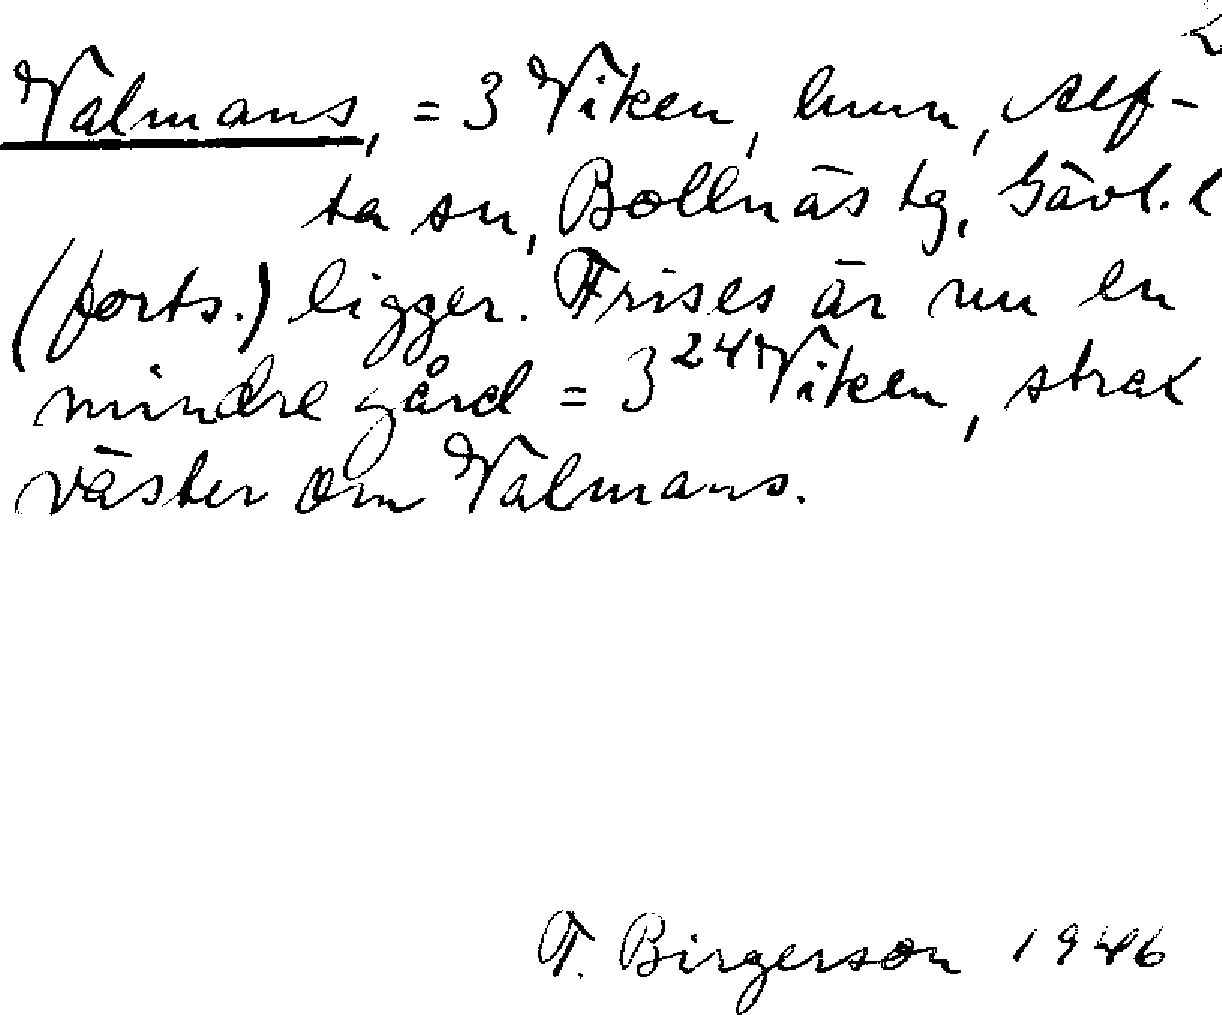 2
Valmans, = 3 Viken, hmn, Alf-
ta sn, Bollnäs tg, Gävl. l
(forts.) ligger. Frises är nu en
mindre gård = 3²⁴ Viken, strax
väster om Valmans.
F. Birgerson 1946